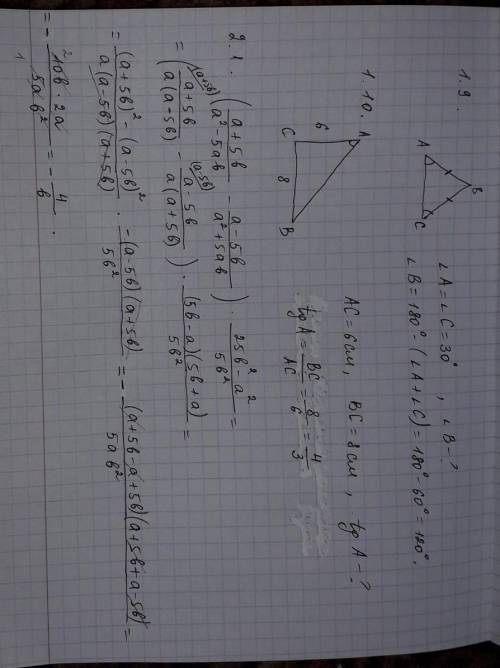 1.9.
B
A
C
∠A=∠C=30°, ∠B-?
∠B=180°-(∠A+∠C)=180°-60°=120°.
1.10.
A
6
C
8
B
AC=6см, BC=8см, tg A-?
tg A = BC/AC = 8/6 = 4/3
2.1. ((a+5b)/(a²-5ab) - (a-5b)/(a²+5ab)) · (25b²-a²)/(5b²) =
= ((a+5b)^(a+5b)/(a(a-5b)) - (a-5b)^(a-5b)/(a(a+5b))) · ((5b-a)(5b+a))/(5b²) =
= ((a+5b)²-(a-5b)²)/(a(a-5b)(a+5b)) · (-(a-5b)(a+5b))/(5b²) = - ((a+5b-a+5b)(a+5b+a-5b))/(5ab²) =
= - (²10b · 2a)/(5ab²) = - 4/b.
1